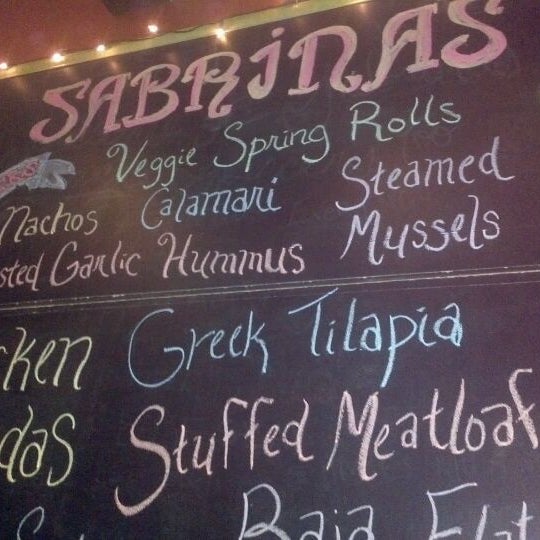 SABRINAS
Veggie Spring Rolls
Nachos Calamari Steamed
sted Garlic Hummus Mussels
ken Greek Tilapia
das Stuffed Meatloaf
Baja